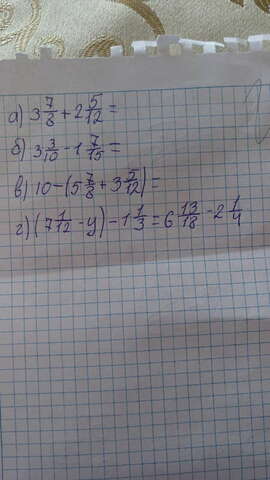 а) 3 7/8 + 2 5/12 =
б) 3 3/10 - 1 7/15 =
в) 10 - (5 7/8 + 3 5/12) =
г) (7 1/12 - y) - 1 1/3 = 6 13/18 - 2 1/4